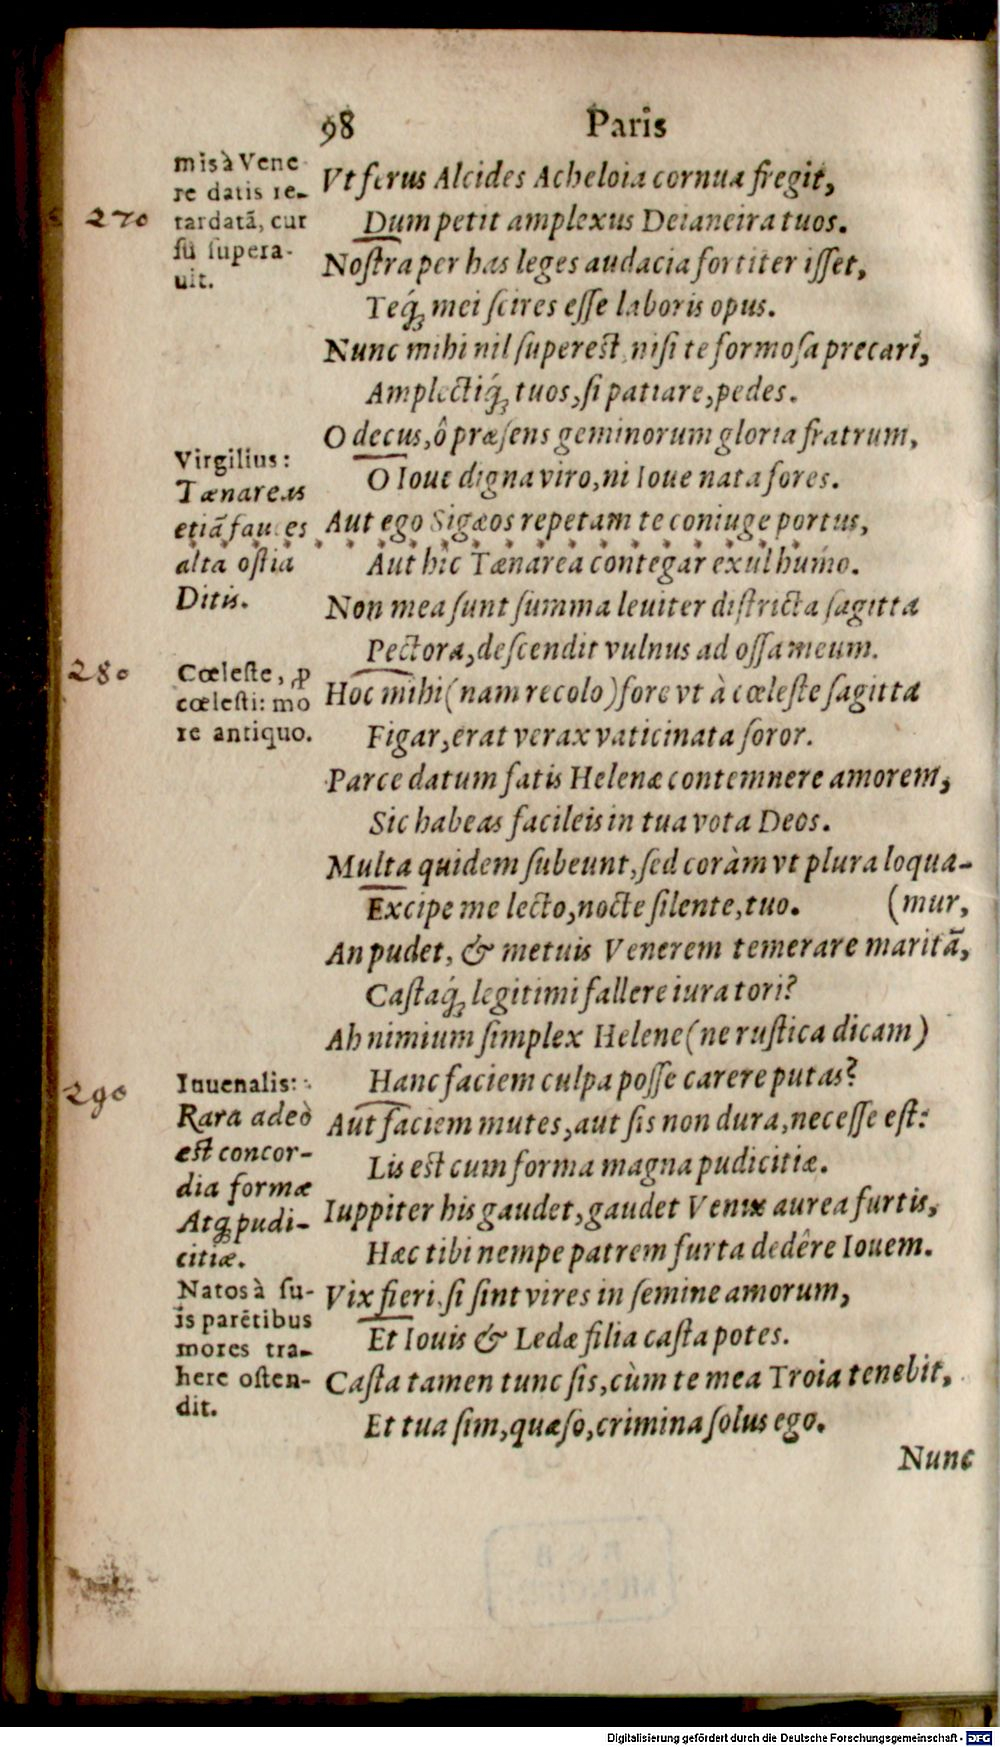 98 Paris
misà Vene
re datis re-
tardatã, cur
su supera-
uit.
270
Vt ferus Alcides Acheloia cornua fregit,
Dum petit amplexus Deianeira tuos.
Nostra per has leges audacia fortiter isset,
Teq́ꝫ mei scires esse laboris opus.
Nunc mihi nil superest nisi te formosa precari,
Amplectiq́ꝫ tuos, si patiare, pedes.
O decus, ô præsens geminorum gloria fratrum,
O Ioue digna viro, ni Ioue nata fores.
Aut ego Sigæos repetam te coniuge portus,
Aut hîc Tænarea contegar exul humo.
Non mea sunt summa leuiter districta sagitta
Pectora, descendit vulnus ad ossa meum.
Hoc mihi (nam recolo) fore vt à cœleste sagitta
Figar, erat verax vaticinata soror.
Parce datum fatis Helenæ contemnere amorem,
Sic habeas facileis in tua vota Deos.
Multa quidem subeunt, sed coràm vt plura loqua-
Excipe me lecto, nocte silente, tuo. (mur,
An pudet, & metuis Venerem temerare maritã,
Castaq́ꝫ legitimi fallere iura tori?
Ah nimium simplex Helene (ne rustica dicam)
Hanc faciem culpa posse carere putas?
Aut faciem mutes, aut sis non dura, necesse est:
Lis est cum forma magna pudicitiæ.
Iuppiter his gaudet, gaudet Venus aurea furtis,
Hæc tibi nempe patrem furta dedêre Iouem.
Vix fieri, si sint vires in semine amorum,
Et Iouis & Ledæ filia casta potes.
Casta tamen tunc sis, cùm te mea Troia tenebit,
Et tua sim, quæso, crimina solus ego.
Nunc
Virgilius:
Tænareas
etiã fauces
alta ostia
Ditis.
280
Cœleste, ꝓ
cœlesti: mo
re antiquo.
290
Iuuenalis:
Rara adeò
est concor-
dia formæ
Atqꝫ pudi-
citiæ.
Natos à su-
is parẽtibus
mores tra-
here osten-
dit.
Digitalisierung gefördert durch die Deutsche Forschungsgemeinschaft - DFG